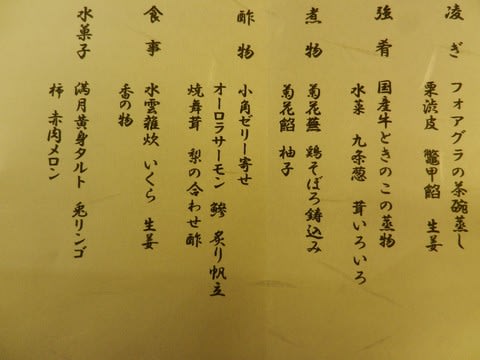 凌ぎ
フォアグラの茶碗蒸し
栗渋皮 鼈甲餡 生姜
強肴
国産牛ときのこの蒸物
水菜 九条葱 茸いろいろ
煮物
菊花蕪 鶏そぼろ鋳込み
菊花餡 柚子
酢物
小角ゼリー寄せ
オーロラサーモン 鯵 炙り帆立
焼舞茸 梨の合わせ酢
食事
水雲雑炊 いくら 生姜
香の物
水菓子
満月黄身タルト 兎リンゴ
柿 赤肉メロン